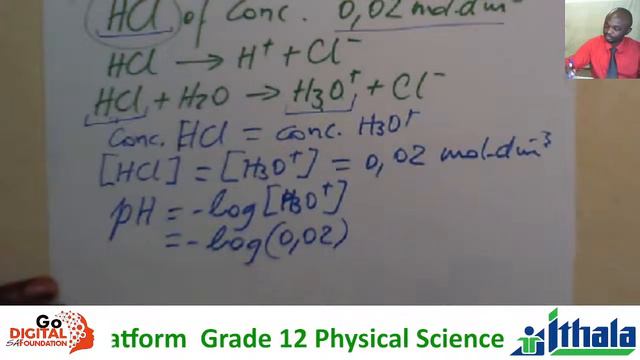 HCl of conc. 0,02 mol·dm⁻
HCl → H⁺ + Cl⁻
HCl + H2O → H3O⁺ + Cl⁻
Conc. HCl = conc. H3O⁺
[HCl] = [H3O⁺] = 0,02 mol·dm⁻³
pH = -log[H3O⁺]
= -log(0,02)
Go
DIGITAL
SA FOUNDATION
atform Grade 12 Physical Science
Ithala